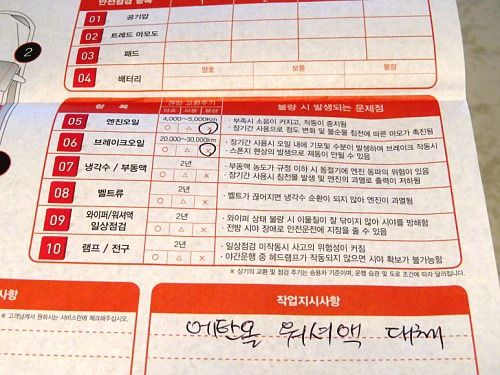 안전점검 항목
1
01 공기압
02 트레드 마모도
03 패드
04 배터리 양호 보통 불량
2
항 목 권장 교환주기 불량 시 발생되는 문제점
양호 보통 불량
05 엔진오일 4,000~5,000km · 부족시 소음이 커지고, 작동이 중지됨
○ △ × · 장기간 사용으로 점도 변화 및 불순물 침전에 따른 마모가 촉진됨
06 브레이크오일 20,000~30,000km · 장기간 사용시 오일 내에 기포및 수분이 발생하여 브레이크 작동시
○ △ × · 스폰지 현상의 발생으로 제동이 안될 수 있음
07 냉각수 / 부동액 2년 · 부동액 농도가 규정 이하시 동절기에 엔진 동파의 위험이 있음
○ △ × · 장기간 사용시 침전물 발생 및 엔진의 과열로 출력이 저하됨
08 벨트류 2년 · 벨트가 끊어지면 냉각수 순환이 되지 않아 엔진이 과열됨
○ △ ×
09 와이퍼/워셔액 일상점검 2년 · 와이퍼 상태 불량 시 이물질이 잘 닦이지 않아 시야를 방해함
○ △ × · 전방 시야 장애로 안전운전에 지장을 줄 수 있음
10 램프 / 전구 2년 · 일상점검 미작동시 사고의 위험성이 커짐
○ △ × · 야간운행 중 헤드램프가 작동되지 않으면 시야 확보가 불가능함
※ 상기의 교환 및 점검 주기는 승용차 기준이며, 운행 습관 및 도로 조건에 따라 달라집니다.
사항
※ 고객님께서 원하시는 서비스란에 체크해주십시오.
작업지시사항
에탄올 워셔액 대체